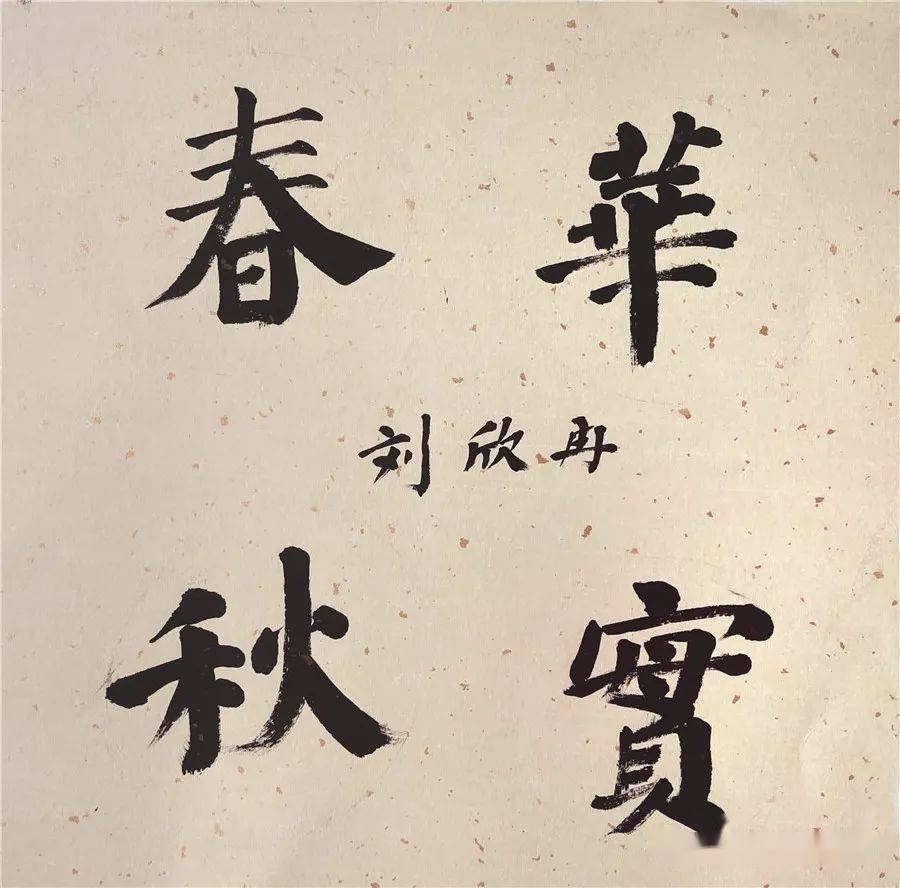 春華
刘欣冉
秋實